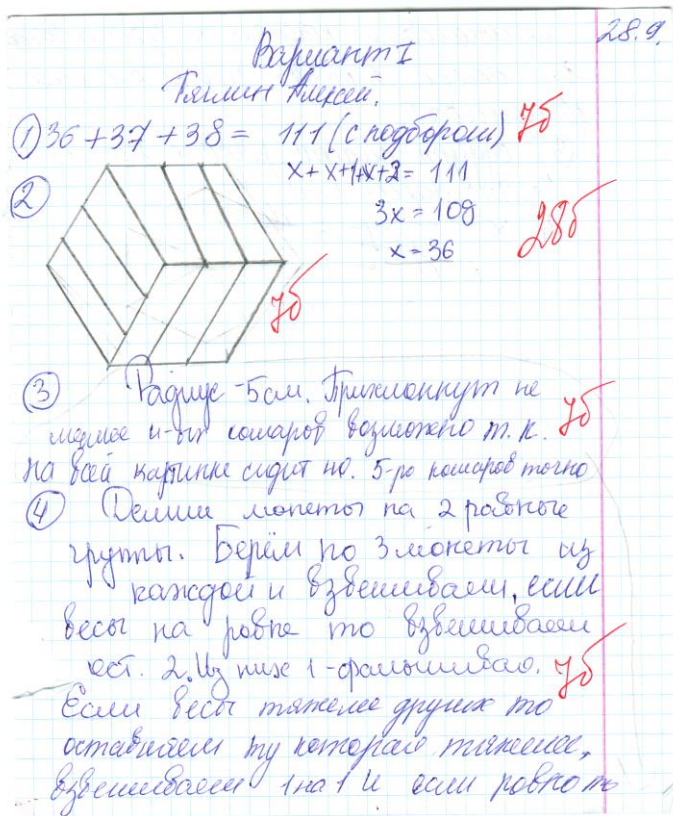 28.9.
Вариант I
Алексей.
① 36+37+38 = 111 (с подбором) 7б
x+x+1+x+2 = 111
② 3x = 108
x = 36 28б
7б
③ Радиус - 5см. Прихлопнут не
менее 4-ых комаров возможно т.к. 7б
на всей картинке сидит по 5-ро комаров точно
④ Делим монеты на 2 равные
группы. Берём по 3 монеты из
каждой и взвешиваем, если
весы на ровне то взвешиваем
ост. 2. Из них 1-фальшивая. 7б
Если весы тяжелее других то
оставляем ту которая тяжелее,
взвешиваем 1 на 1 и если ровно то